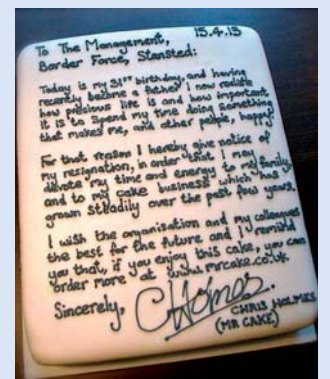 15.4.13
To The Management,
Border Force, Stansted:
Today is my 31ST birthday, and having
recently become a father I now realise
how precious life is and how important
it is to spend my time doing something
that makes me, and other people, happy.
For that reason I hereby give notice of
my resignation, in order that I may
devote my time and energy to my family,
and to my cake business which has
grown steadily over the past few years.
I wish the organisation and my colleagues
the best for the future and I remind
you that, if you enjoy this cake, you can
order more at www.mrcake.co.uk.
Sincerely, CHolmes
CHRIS HOLMES
(MR CAKE)